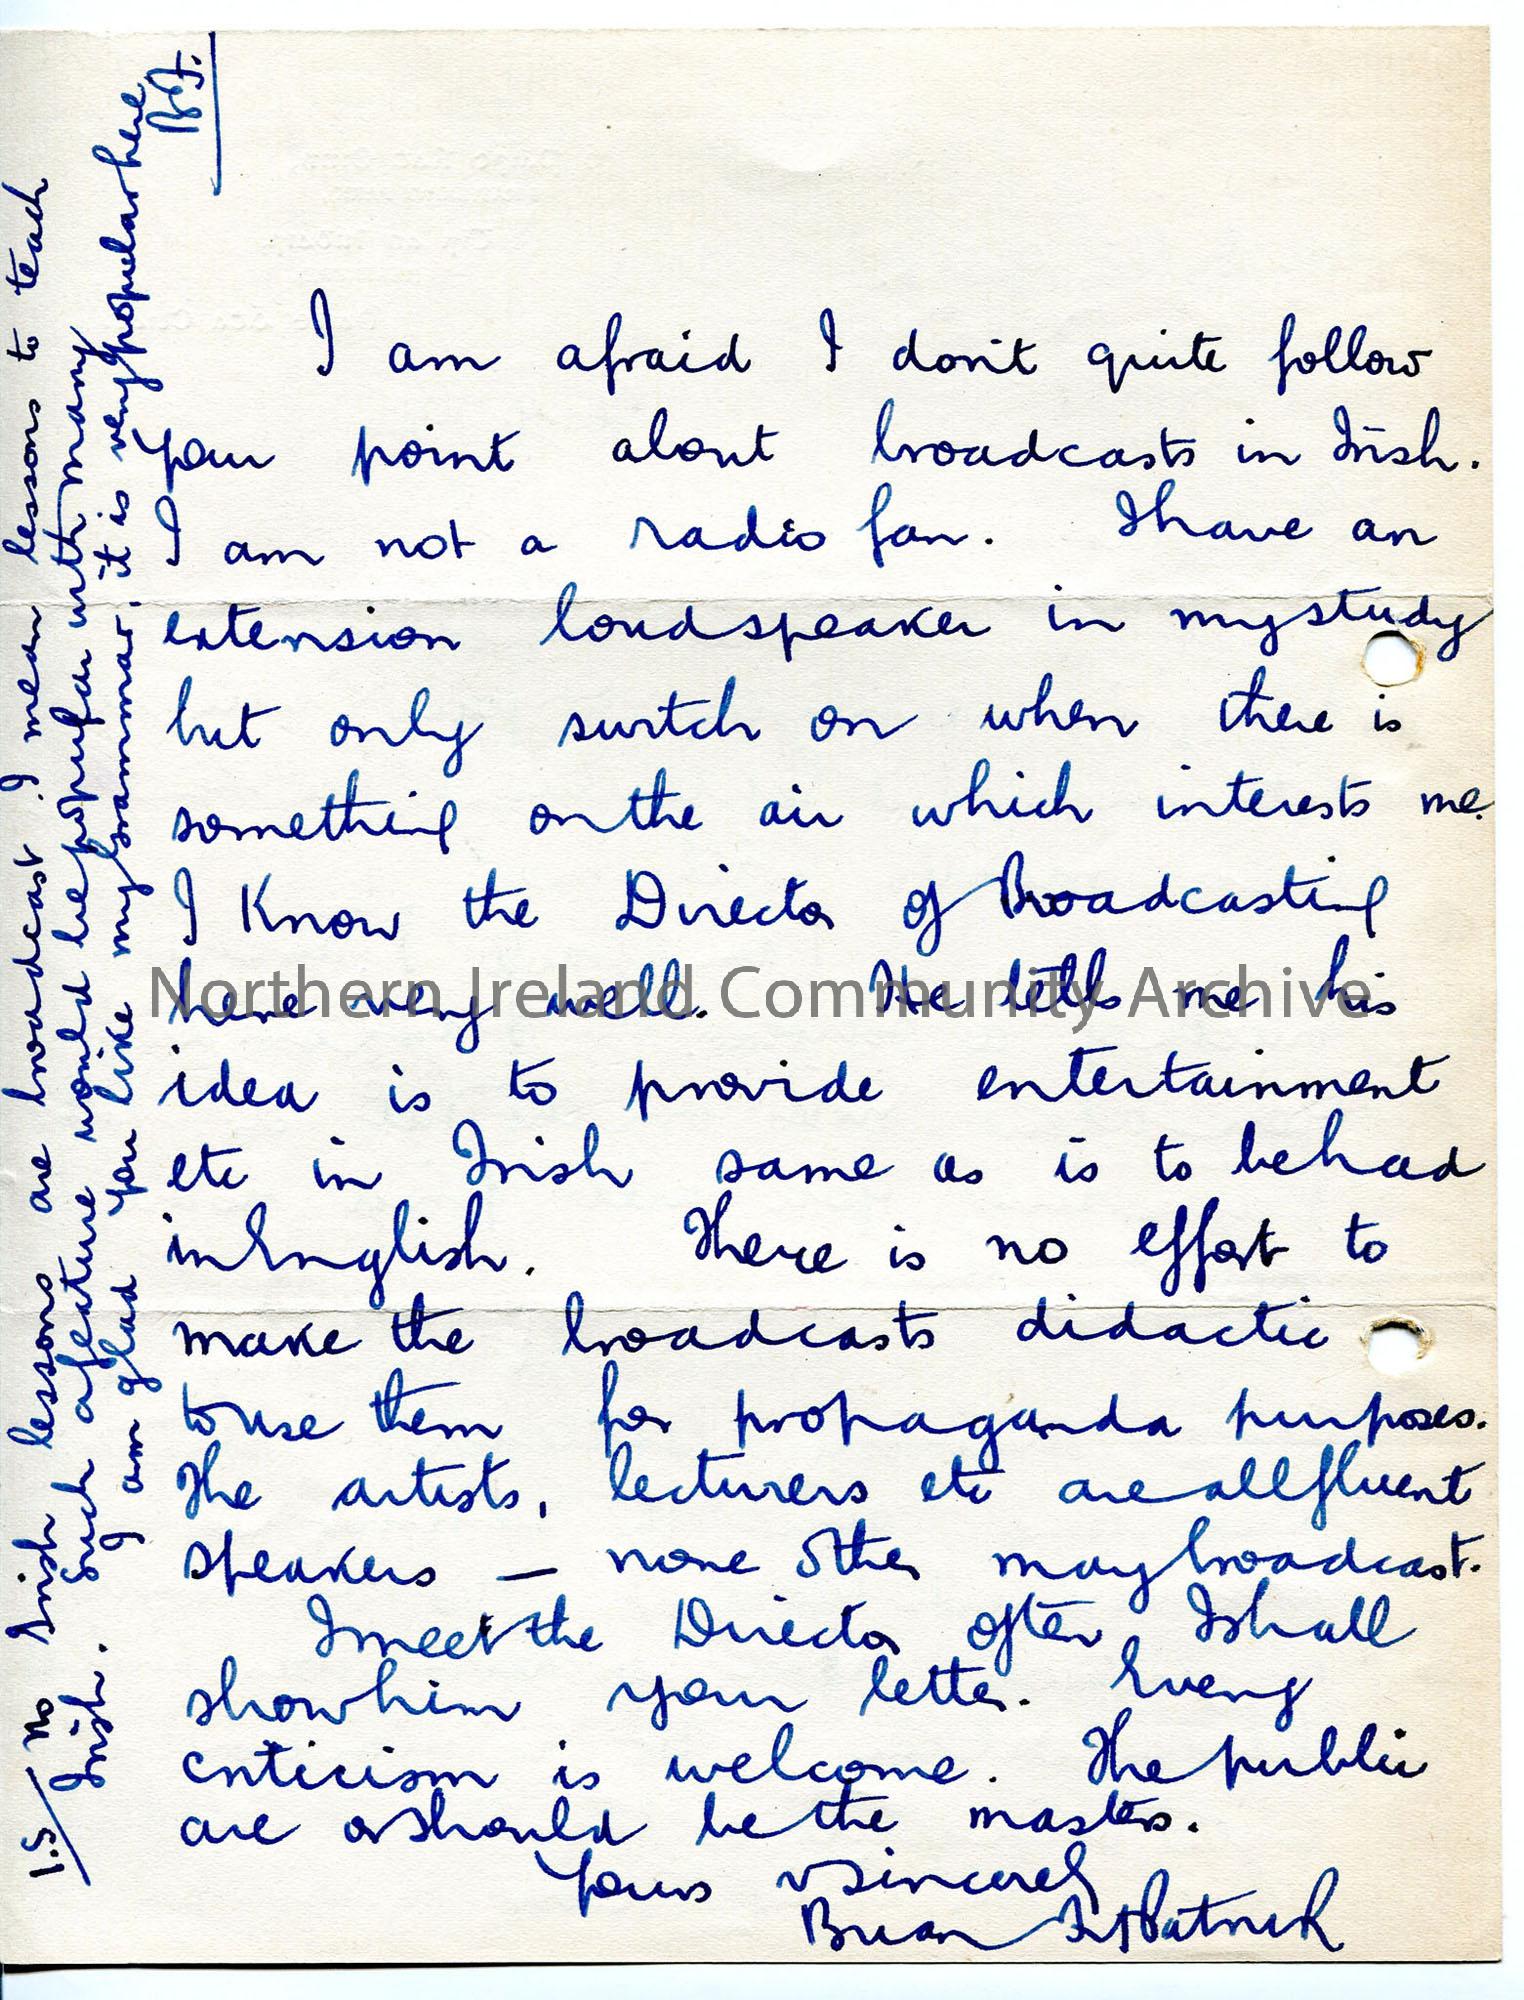 I am afraid I don't quite follow
your point about broadcasts in Irish.
I am not a radio fan. I have an
extension loudspeaker in my study
but only switch on when there is
something on the air which interests me.
I know the Director of Broadcasting
here very well. He tells me his
idea is to provide entertainment
etc in Irish same as is to be had
in English. There is no effort to
make the broadcasts didactic
to use them for propaganda purposes.
The artists, lecturers etc are all fluent
speakers — none other may broadcast.
I meet the Director often, I shall
show him your letter. Every
criticism is welcome. The public
are or should be the masters.
Yours v sincerely
Brian FitzPatrick
No Irish lessons are broadcast. I mean lessons to teach
Irish. Such a feature would be popular with many
I am glad you like my grammar, it is very popular here
B.F.
Northern Ireland Community Archive